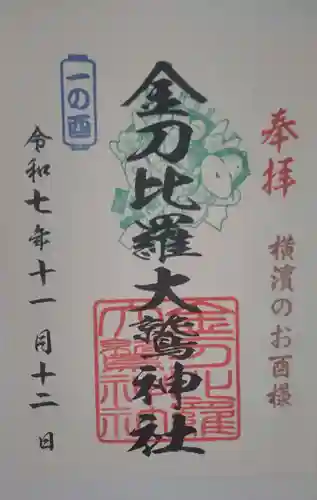 奉拝
横濱のお酉様
金刀比羅大鷲神社
金刀比羅大鷲神社
一の酉
令和七年十一月十二日